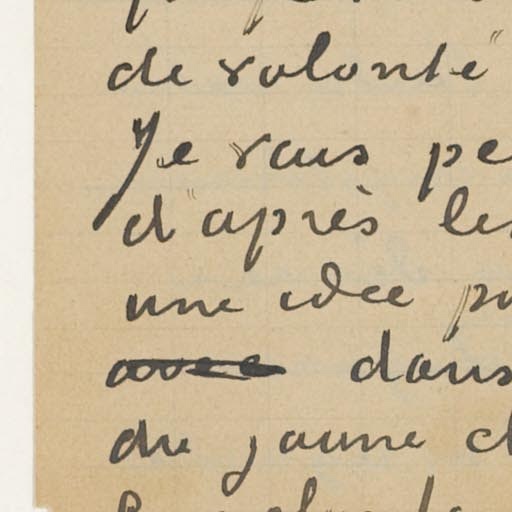 de volonté"
Je vais pe
d'après les
une idée po
avec dans
du jaune cl